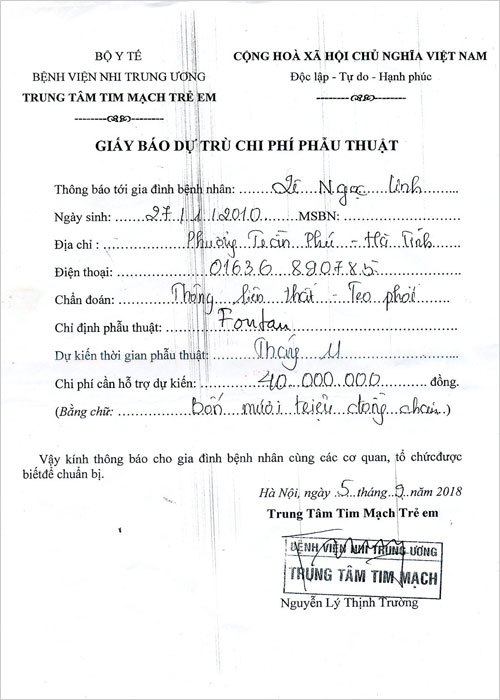 BỘ Y TẾ
BỆNH VIỆN NHI TRUNG ƯƠNG
TRUNG TÂM TIM MẠCH TRẺ EM
CỘNG HOÀ XÃ HỘI CHỦ NGHĨA VIỆT NAM
Độc lập - Tự do - Hạnh phúc
GIẤY BÁO DỰ TRÙ CHI PHÍ PHẪU THUẬT
Thông báo tới gia đình bệnh nhân: Lê Ngọc Linh
Ngày sinh: 27/1/2010 MSBN:
Địa chỉ : Phường Trần Phú - Hà Tĩnh
Điện thoại: 01636 890785
Chẩn đoán: Thông liên thất - Teo phổi
Chỉ định phẫu thuật: Fontan
Dự kiến thời gian phẫu thuật: Tháng 11
Chi phí cần hỗ trợ dự kiến: 40.000.000 đồng.
(Bằng chữ: Bốn mươi triệu đồng chẵn)
Vậy kính thông báo cho gia đình bệnh nhân cùng các cơ quan, tổ chứcđược
biếtđể chuẩn bị.
Hà Nội, ngày 5 tháng 9 năm 2018
Trung Tâm Tim Mạch Trẻ em
BỆNH VIỆN NHI TRUNG ƯƠNG
TRUNG TÂM TIM MẠCH
Nguyễn Lý Thịnh Trường